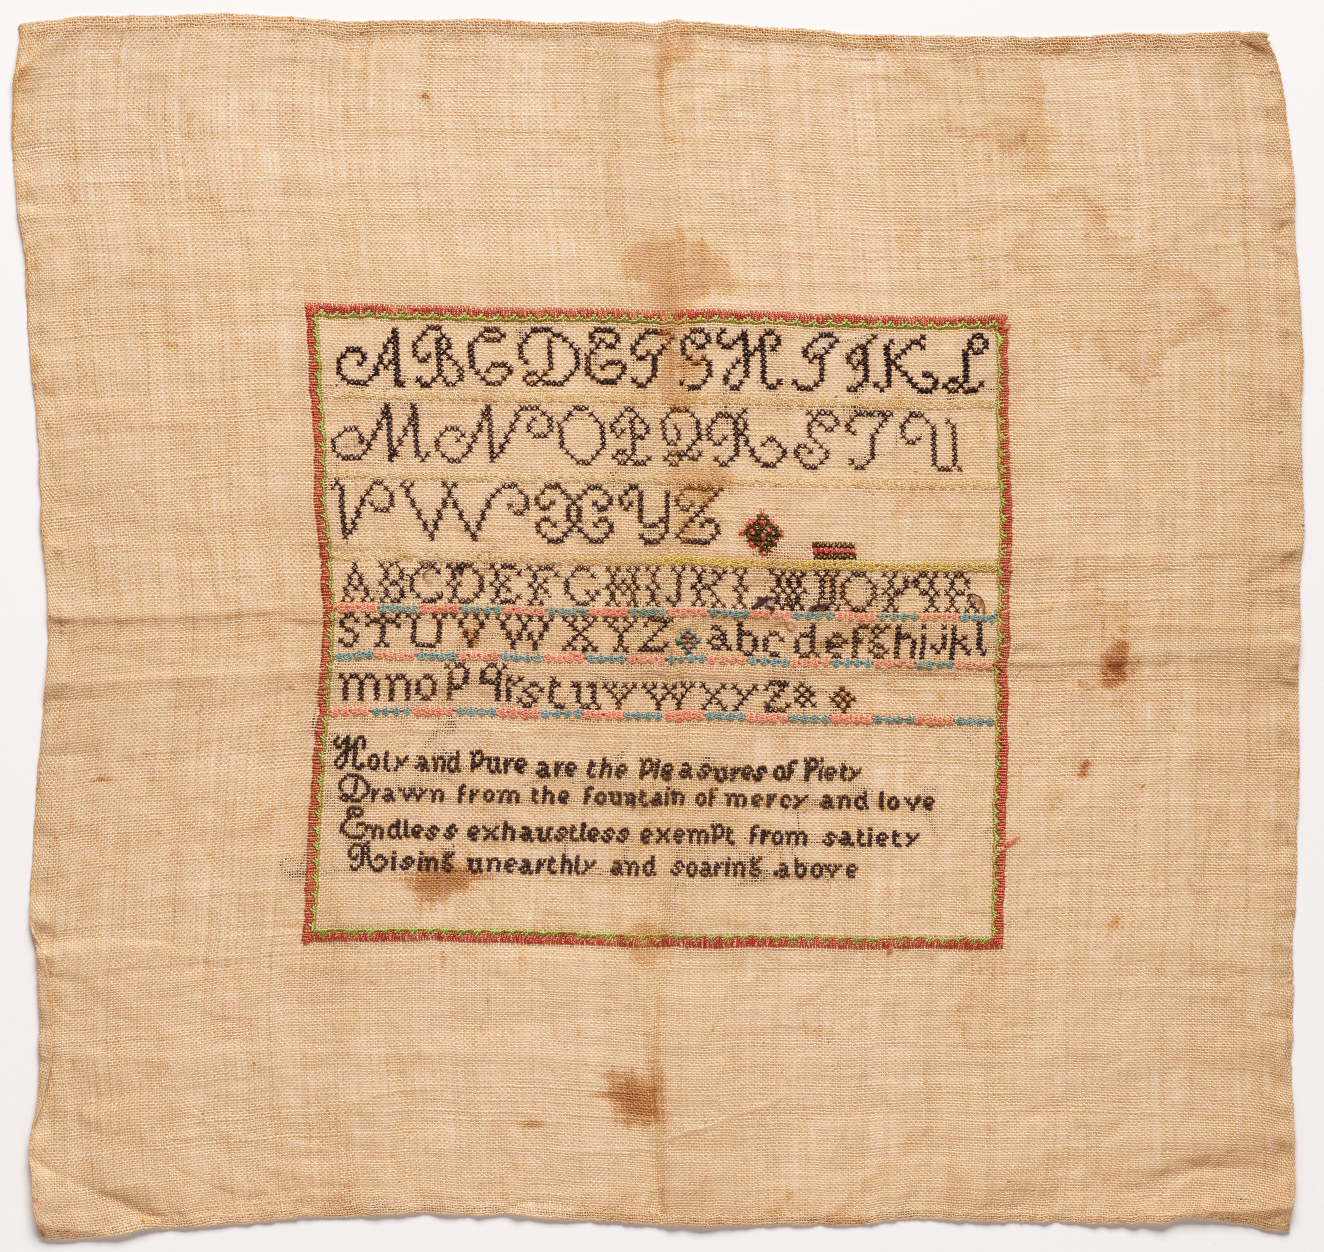 A B C D E F G H I J K L
M N O P Q R S T U
V W X Y Z
A B C D E F G H I J K L M N O P Q R
S T U V W X Y Z a b c d e f g h i j k l
m n o p q r s t u v w x y z &
Holy and Pure are the Pleasures of Piety
Drawn from the fountain of mercy and love
Endless exhaustless exempt from satiety
Rising unearthly and soaring above